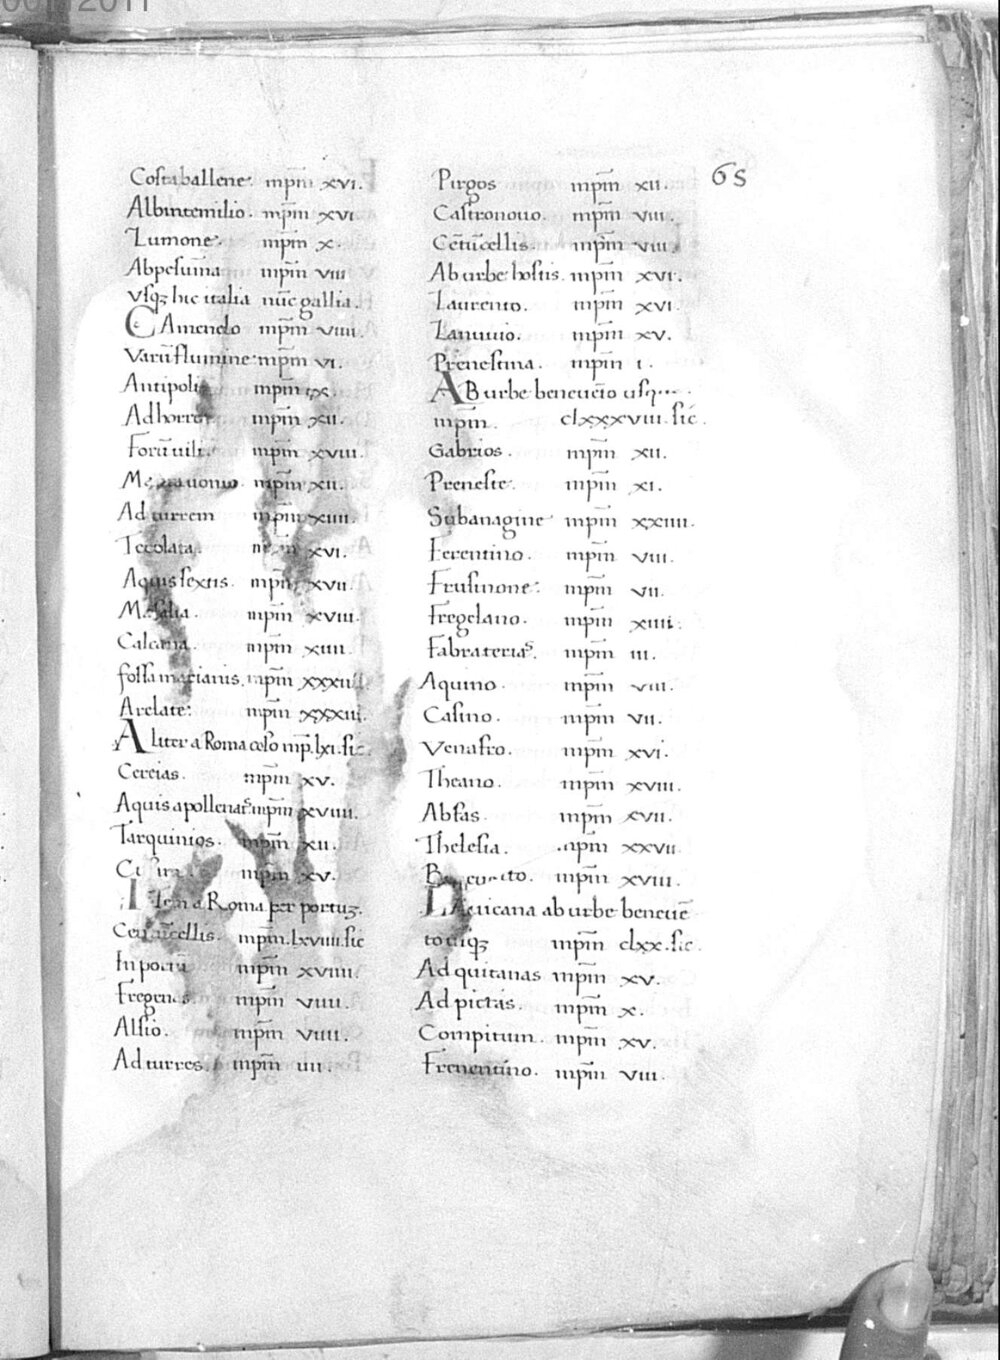 65
Costaballene. mpm̅ xvi.
Albintemilio. mpm̅ xvi
Lumone. mpm̅ x.
Abpesum̅a mpm̅ viii
vsq; hic italia nūc gallia.
CAmenelo mpm̅ viiii.
Varū flumine mpm̅ vi.
Antipoli mpm̅ ix.
Ad horrea mpm̅ xii.
Forū uili. mpm̅ xviii.
mpm̅ xii.
Ad turrem mpm̅ xiiii.
Tecolata. mpm̅ xvi.
Aquis sextis. mpm̅ xvii.
Masalia. mpm̅ xviii.
Calcaria. mpm̅ xiiii.
fossa marianis. mpm̅
Arelate: mpm̅ xxxiii.
Aliter a Roma coso mp̅. lxi. sic.
Cereias. mpm̅ xv.
Aquis apollenar̅s mpm̅ xviiii.
Tarquinios. mpm̅ xii.
mpm̅ xv.
Item a Roma per portuʒ.
Centūcellis. mpm̅. lxviiii sic
In portū mpm̅ xviiii.
Fregenas. mpm̅ viiii.
Alsio. mpm̅ viiii.
Ad turres. mpm̅ iiii.
Pirgos mpm̅ xii.
Castronouo. mpm̅ viii.
Cētūcellis. mpm̅ viii.
Ab urbe hostis. mpm̅ xvi.
Laurento. mpm̅ xvi.
Lanuuio. mpm̅ xv.
Prenestina. mpm̅ i.
AB urbe beneuēto usq
mpm̅. clxxxviii. sic.
Gabrios. mpm̅ xii.
Preneste. mpm̅ xi.
Subanagine mpm̅ xxiiii.
Ferentino. mpm̅ viii.
Frusinone: mpm̅ vii.
Fregelano. mpm̅ xiiii.
Fabraterias. mpm̅ iii.
Aquino. mpm̅ viii.
Casino. mpm̅ vii.
Venafro. mpm̅ xvi.
Theano. mpm̅ xviii.
Absas. mpm̅ xvii.
Thelesia. mpm̅ xxvii
Beneuento. mpm̅ xviii.
LAuicana ab urbe beneuē
to usq; mpm̅ clxx. sic.
Ad quitanas mpm̅ xv.
Ad pictas. mpm̅ x.
Compitum. mpm̅ xv.
Frenentino. mpm̅ viii.